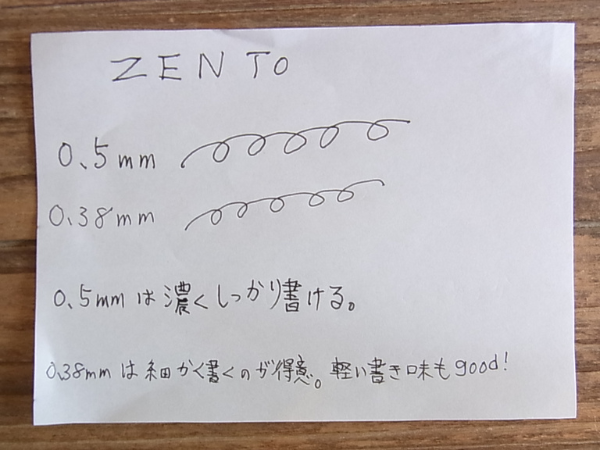 ZENTO
0.5mm
0.38mm
0.5mmは濃くしっかり書ける。
0.38mmは細かく書くのが得意。軽い書き味もgood!